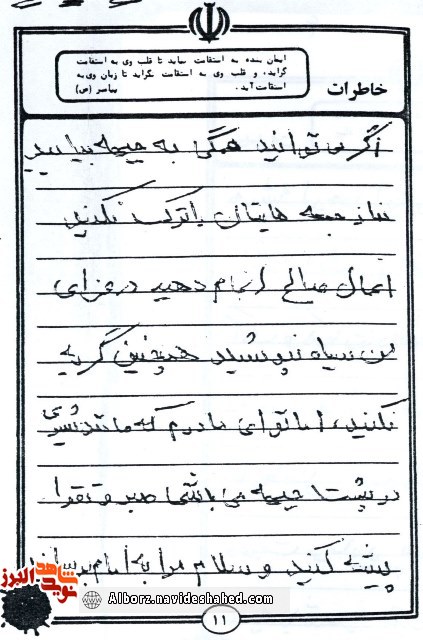 ایمان بنده به استقامت نیاید تا قلب وی به استقامت
گراید، و قلب وی به استقامت نگراید تا زبان وی به
استقامت آید. پیامبر (ص)
خاطرات
اگر می توانید همگی به جبهه بیایید
نماز جمعه هایتان را ترک نکنید
اعمال صالح انجام دهید در عزای
من سیاه نپوشید همچنین گریه
نکنید، اما تو ای مادرم که مانند شیری
در پشت جبهه می باشی صبر و تقوا
پیشه کنید و سلام مرا به امام برسانید
شاهد
نوید البرز
Alborz.navideshahed.com
۱۱